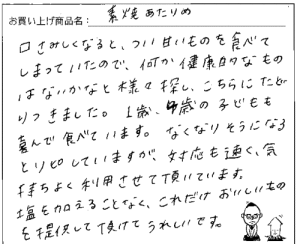 お買い上げ商品名： 素焼あたりめ
口さみしくなると、つい甘いものを食べて
しまっていたので、何か健康的なもの
はないかなと様々探し、こちらにたど
りつきました。1歳、4歳の子どもも
喜んで食べています。なくなりそうになる
とリピしていますが、対応も速く、気
持ちよく利用させて頂いています。
塩を加えることなく、これだけおいしいもの
を提供して頂けてうれしいです。